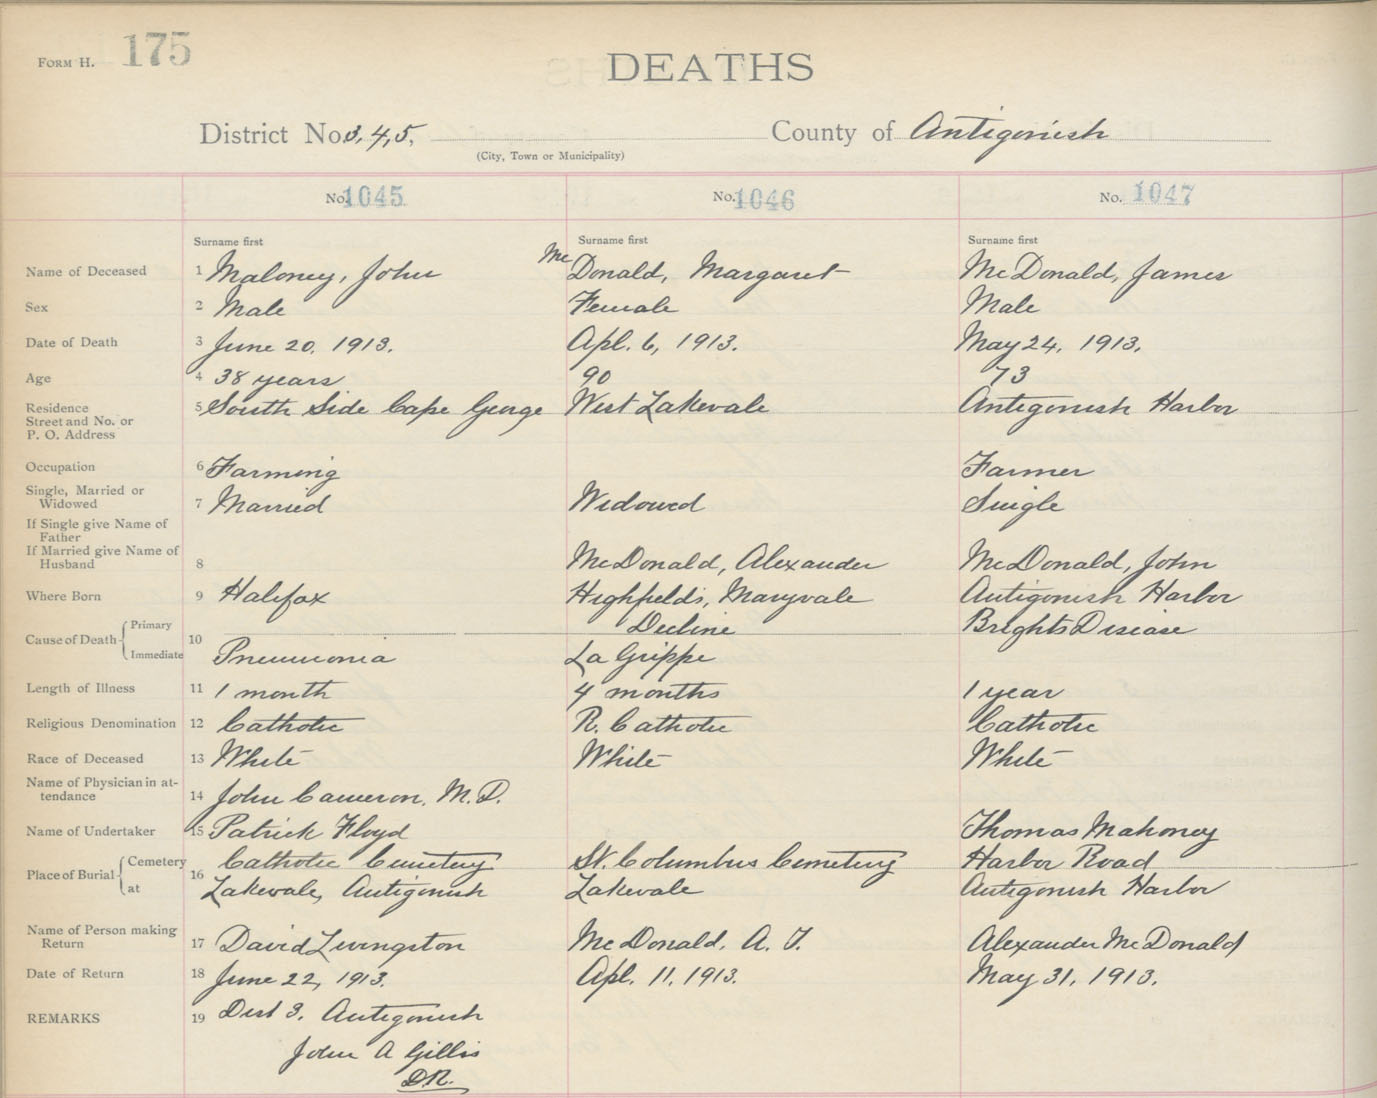 FORM H. 175
DEATHS
District No. 3, 4, 5, County of Antigonish
(City, Town or Municipality)
No. 1045 No. 1046 No. 1047
Surname first Surname first Surname first
Name of Deceased 1 Maloney, John McDonald, Margaret McDonald, James
Sex 2 Male Female Male
Date of Death 3 June 20, 1913. Apl. 6, 1913. May 24, 1913.
Age 4 38 years 90 73
Residence
Street and No. or
P. O. Address
5 South Side Cape George West Lakevale Antigonish Harbor
Occupation 6 Farming Farmer
Single, Married or
Widowed 7 Married Widowed Single
If Single give Name of
Father
If Married give Name of
Husband 8 McDonald, Alexander McDonald, John
Where Born 9 Halifax Highfields, Maryvale Antigonish Harbor
Cause of Death 10
Primary Decline Brights Disease
Immediate Pneumonia La Grippe
Length of Illness 11 1 month 4 months 1 year
Religious Denomination 12 Catholic R. Catholic Catholic
Race of Deceased 13 White White White
Name of Physician in at-
tendance 14 John Cameron, M.D.
Name of Undertaker 15 Patrick Floyd Thomas Mahoney
Place of Burial 16
Cemetery Catholic Cemetery St. Columbus Cemetery Harbor Road
at Lakevale, Antigonish Lakevale Antigonish Harbor
Name of Person making
Return 17 David Livingston McDonald, A. J. Alexander McDonald
Date of Return 18 June 22, 1913. Apl. 11, 1913. May 31, 1913.
REMARKS 19 Dist 3. Antigonish
John A Gillis
D.R.